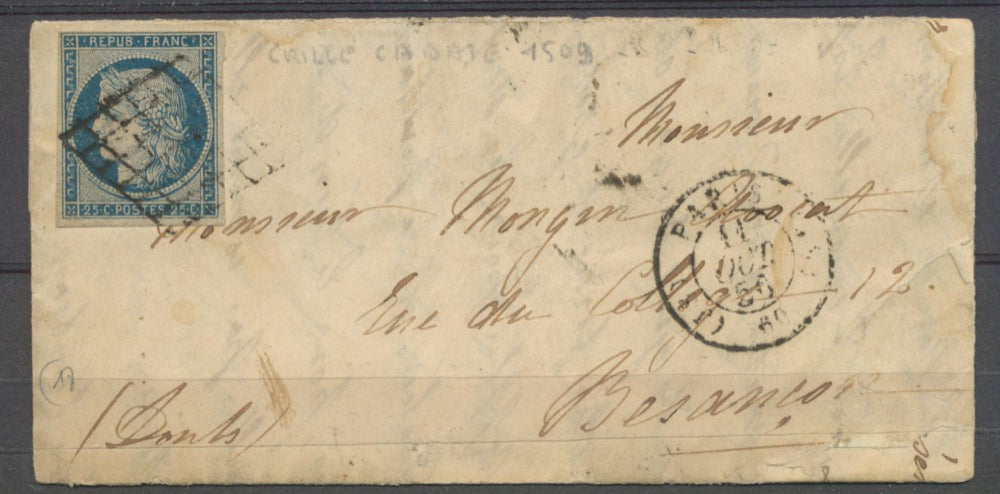 REPUB · FRANC ·
25 C · POSTES 25 · C
GRILLE 1509
Monsieur
Monsieur Mongin Avocat
Rue du Collège 12.
Besançon
(Doubs)
PARIS
11
OCT
50
(60)
17